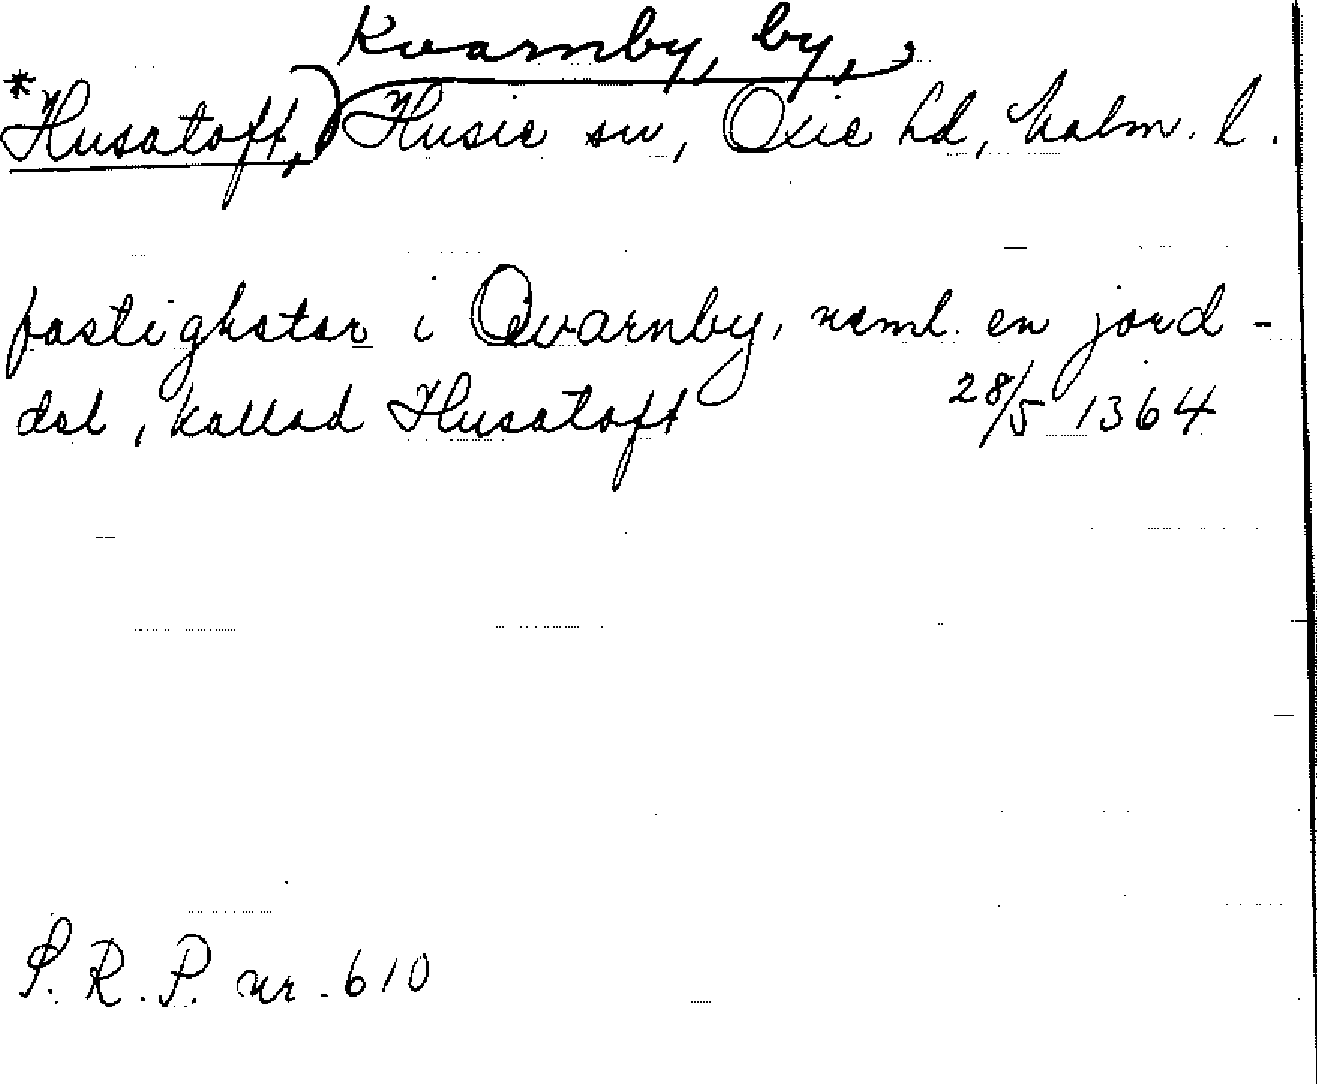 Kvarnby, by,
*Husatoft, Husie sn, Oxie hd, Malm. l.
fastigheter i Qvarnby, neml. en jord-
del, kallad Husatoft 28/5 1364
S. R. P. nr. 610